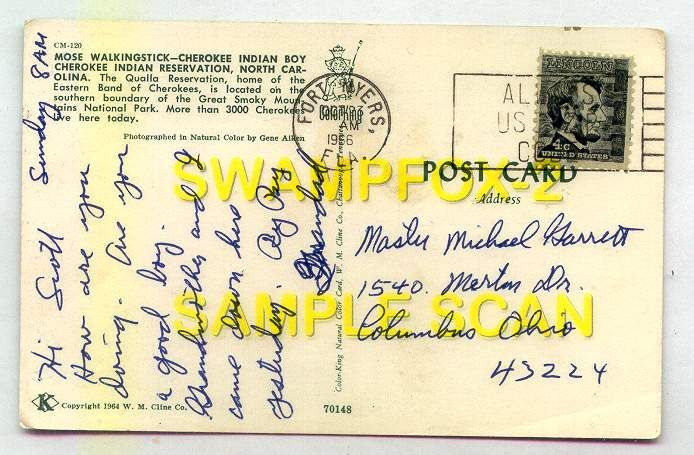 CM-120
MOSE WALKINGSTICK—CHEROKEE INDIAN BOY
CHEROKEE INDIAN RESERVATION, NORTH CAR-
OLINA. The Qualla Reservation, home of the
Eastern Band of Cherokees, is located on the
southern boundary of the Great Smoky Moun-
tains National Park. More than 3000 Cherokees
live here today.
Photographed in Natural Color by Gene Aiken
Sunday 8 AM
Hi Scott
How are you
doing. Are you
a good boy.
Grandmother and I
came down here
yesterday. By Pay
Grandad
K Copyright 1964 W. M. Cline Co.
70148
Color-King Natural Color Card, W. M. Cline Co., Chattanooga, Tennessee
FORT MYERS,
AM
1966
FLA.
AL
US
CO
LINCOLN
4c
UNITED STATES
POST CARD
Address
Master Michael Garrett
1540 Merton Dr.
Columbus Ohio
43224
SWAMPFOX-2
SAMPLE SCAN